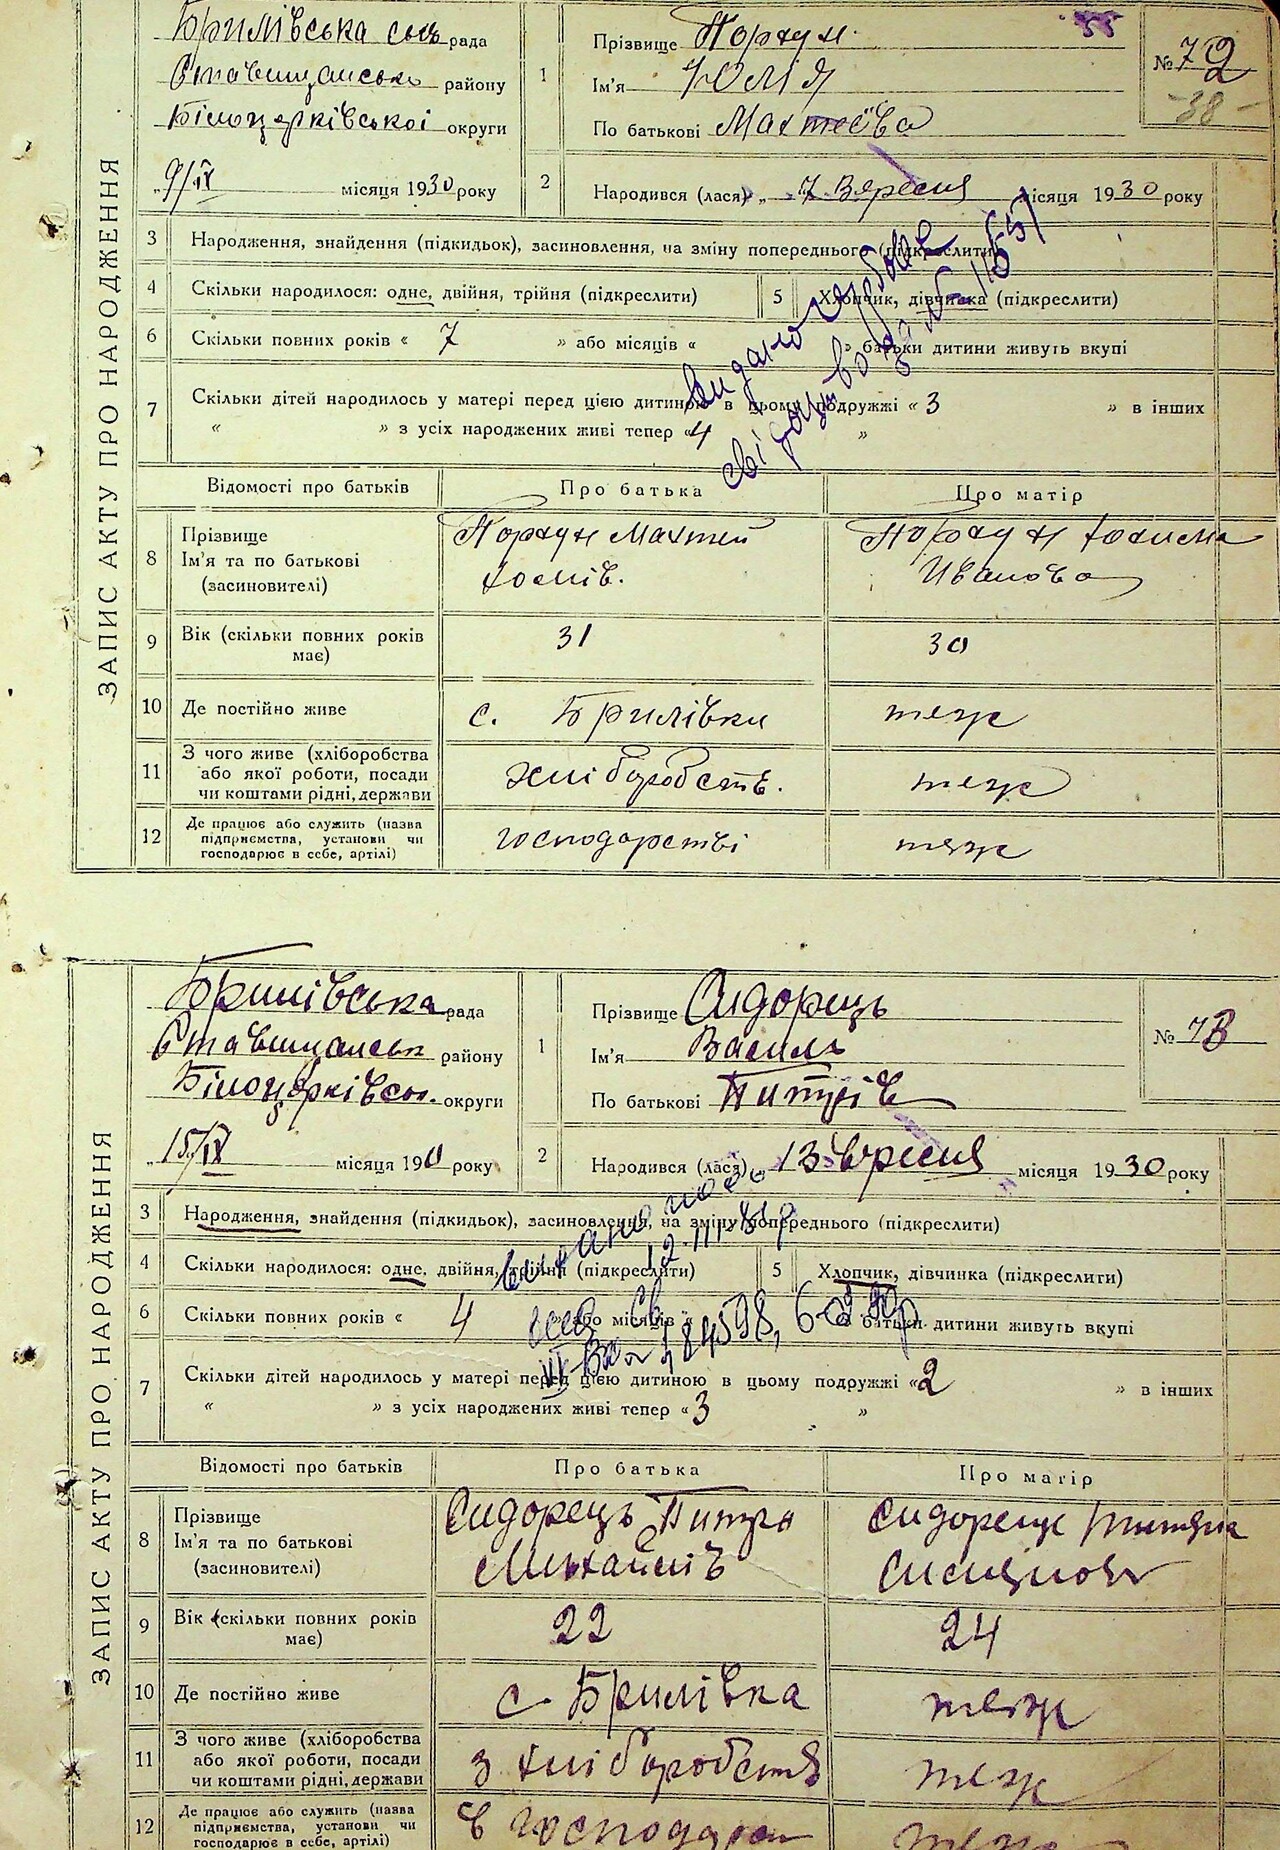 ЗАПИС АКТУ ПРО НАРОДЖЕННЯ
Брилівська сіль рада
Ставищанськ району
Білоцерківської округи
„ 9/ІХ місяця 1930 року
1 Прізвище Порхун
Ім'я Юлія
По батькові Махтеєва
№ 72
-38-
2 Народився (лася) „ 7 Вересня місяця 1930 року
3 Народження, знайдення (підкидьок), засиновлення, на зміну попереднього (підкреслити)
4 Скільки народилося: одне, двійня, трійня (підкреслити) 5 Хлопчик, дівчинка (підкреслити)
6 Скільки повних років « 7 » або місяців « » батьки дитини живуть вкупі
7 Скільки дітей народилось у матері перед цією дитиною в цьому подружжі « 3 » в інших
« » з усіх народжених живі тепер « 4 »
видано
свідоцтво за №
Відомості про батьків Про батька Про матір
8 Прізвище
Ім'я та по батькові
(засиновителі)
Порхун Махтей
Хомів.
Порхун Юхима
Иванова
9 Вік (скільки повних років має) 31 30
10 Де постійно живе с. Брилівки теж
11 З чого живе (хліборобства
або якої роботи, посади
чи коштами рідні, держави
хліборобств. теж
12 Де працює або служить (назва
підприємства, установи чи
господарює в себе, артілі)
господарстві теж
ЗАПИС АКТУ ПРО НАРОДЖЕННЯ
Брилівська рада
Ставищанськ району
Білоцерківськ. округи
„ 15/ІХ місяця 190 року
1 Прізвище Сидорець
Ім'я Василь
По батькові
№ 73
2 Народився (лася) „ 13 вересня місяця 1930 року
3 Народження, знайдення (підкидьок), засиновлення, на зміну попереднього (підкреслити)
4 Скільки народилося: одне, двійня, трійня (підкреслити) 5 Хлопчик, дівчинка (підкреслити)
6 Скільки повних років « 4 » або місяців « » батьки дитини живуть вкупі
7 Скільки дітей народилось у матері перед цією дитиною в цьому подружжі « 2 » в інших
« » з усіх народжених живі тепер « 3 »
видано
184598,
Відомості про батьків Про батька Про матір
8 Прізвище
Ім'я та по батькові
(засиновителі)
Сидорець
Михайлів
Сидорець
9 Вік (скільки повних років має) 22 24
10 Де постійно живе с. Брилівка теж
11 З чого живе (хліборобства
або якої роботи, посади
чи коштами рідні, держави
з хліборобств теж
12 Де працює або служить (назва
підприємства, установи чи
господарює в себе, артілі)
в господарст теж